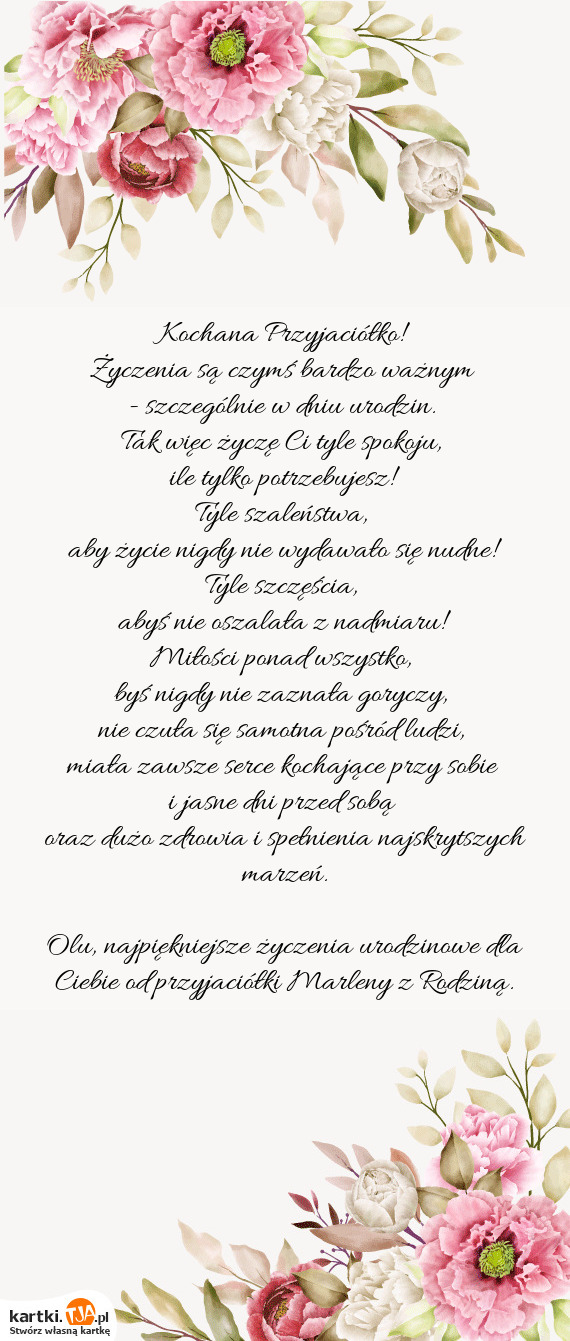 Kochana Przyjaciółko!
Życzenia są czymś bardzo ważnym
- szczególnie w dniu urodzin.
Tak więc życzę Ci tyle spokoju,
ile tylko potrzebujesz!
Tyle szaleństwa,
aby życie nigdy nie wydawało się nudne!
Tyle szczęścia,
abyś nie oszalała z nadmiaru!
Miłości ponad wszystko,
byś nigdy nie zaznała goryczy,
nie czuła się samotna pośród ludzi,
miała zawsze serce kochające przy sobie
i jasne dni przed sobą
oraz dużo zdrowia i spełnienia najskrytszych
marzeń.
Olu, najpiękniejsze życzenia urodzinowe dla
Ciebie od przyjaciółki Marleny z Rodziną.
kartki.TJA.pl
Stwórz własną kartkę